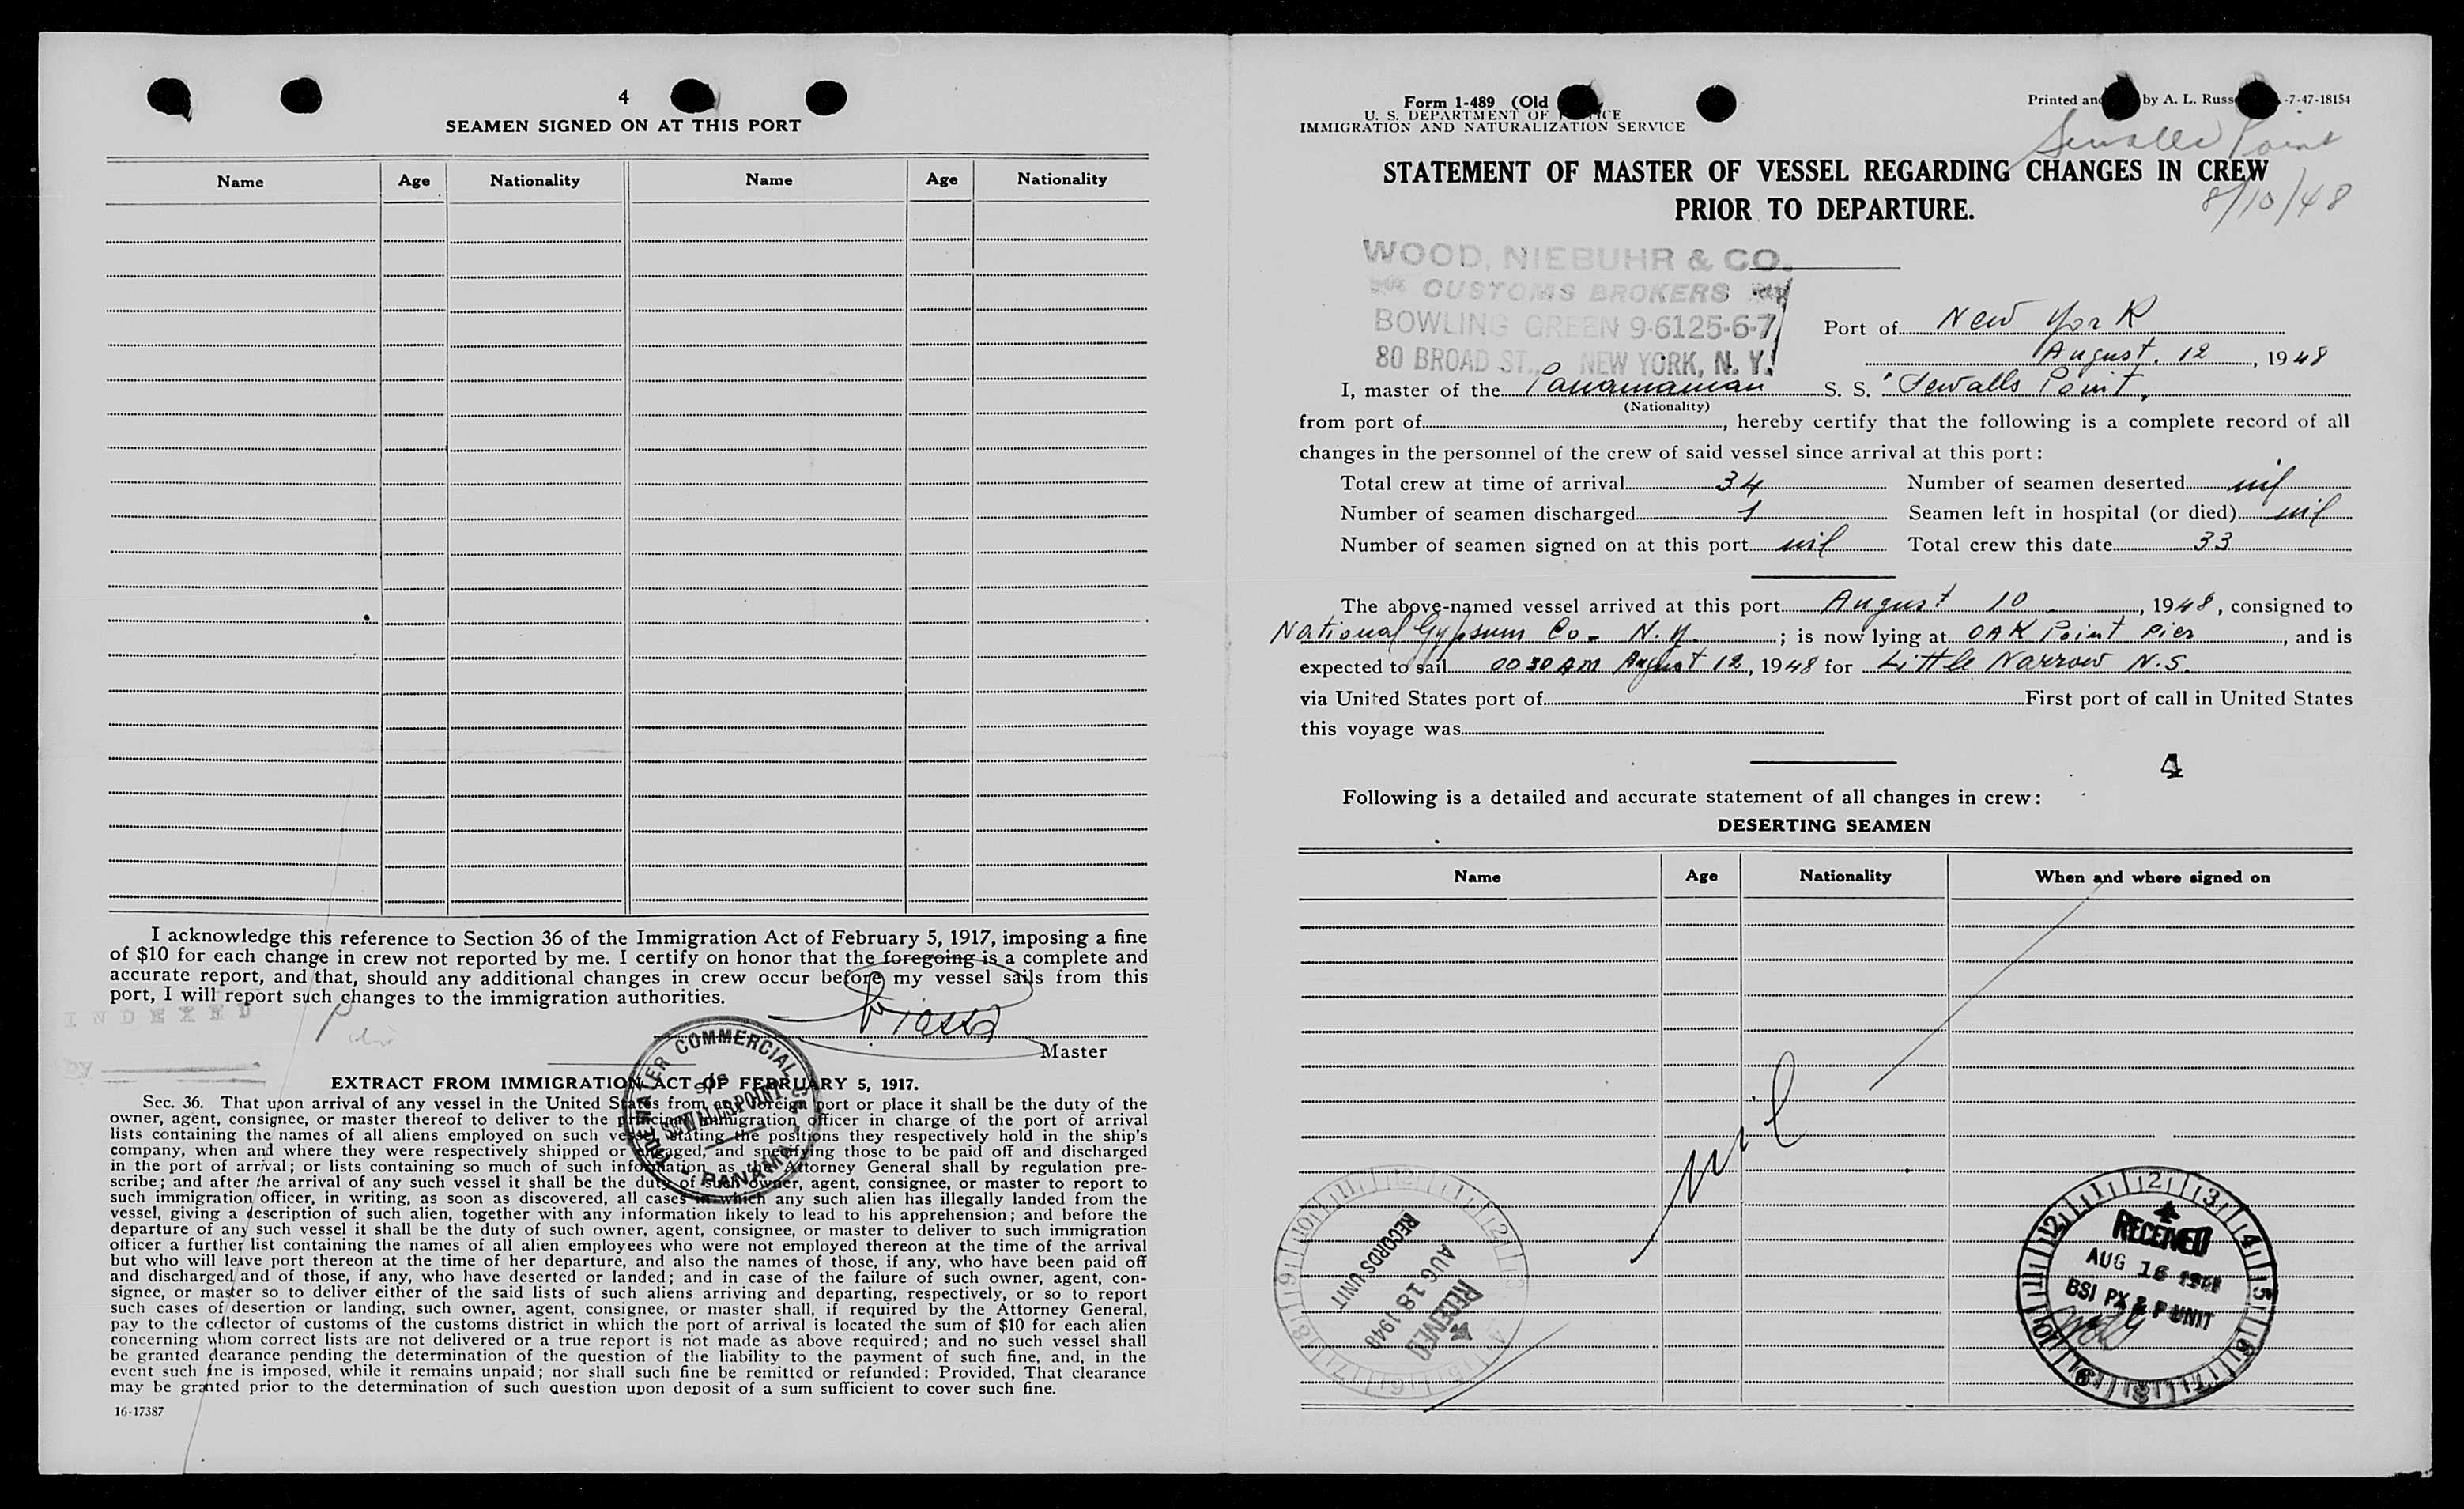 4
SEAMEN SIGNED ON AT THIS PORT
Name Age Nationality Name Age Nationality
I acknowledge this reference to Section 36 of the Immigration Act of February 5, 1917, imposing a fine
of $10 for each change in crew not reported by me. I certify on honor that the foregoing is a complete and
accurate report, and that, should any additional changes in crew occur before my vessel sails from this
port, I will report such changes to the immigration authorities.
INDEXED
Master
TIDEWATER COMMERCIAL CO.
S/S
SEWALLS POINT
PANAMA
EXTRACT FROM IMMIGRATION ACT OF FEBRUARY 5, 1917.
Sec. 36. That upon arrival of any vessel in the United States from any foreign port or place it shall be the duty of the
owner, agent, consignee, or master thereof to deliver to the principal immigration officer in charge of the port of arrival
lists containing the names of all aliens employed on such vessel, stating the positions they respectively hold in the ship's
company, when and where they were respectively shipped or engaged, and specifying those to be paid off and discharged
in the port of arrival; or lists containing so much of such information as the Attorney General shall by regulation pre-
scribe; and after the arrival of any such vessel it shall be the duty of such owner, agent, consignee, or master to report to
such immigration officer, in writing, as soon as discovered, all cases in which any such alien has illegally landed from the
vessel, giving a description of such alien, together with any information likely to lead to his apprehension; and before the
departure of any such vessel it shall be the duty of such owner, agent, consignee, or master to deliver to such immigration
officer a further list containing the names of all alien employees who were not employed thereon at the time of the arrival
but who will leave port thereon at the time of her departure, and also the names of those, if any, who have been paid off
and discharged and of those, if any, who have deserted or landed; and in case of the failure of such owner, agent, con-
signee, or master so to deliver either of the said lists of such aliens arriving and departing, respectively, or so to report
such cases of desertion or landing, such owner, agent, consignee, or master shall, if required by the Attorney General,
pay to the collector of customs of the customs district in which the port of arrival is located the sum of $10 for each alien
concerning whom correct lists are not delivered or a true report is not made as above required; and no such vessel shall
be granted clearance pending the determination of the question of the liability to the payment of such fine, and, in the
event such fine is imposed, while it remains unpaid; nor shall such fine be remitted or refunded: Provided, That clearance
may be granted prior to the determination of such question upon deposit of a sum sufficient to cover such fine.
16-17387
Form 1-489 (Old
U. S. DEPARTMENT OF
IMMIGRATION AND NATURALIZATION SERVICE
Printed and by A. L. Russ -7-47-18154
Sewalls Point
STATEMENT OF MASTER OF VESSEL REGARDING CHANGES IN CREW
PRIOR TO DEPARTURE.
8/10/48
WOOD, NIEBUHR & CO.
CUSTOMS BROKERS
BOWLING GREEN 9-6125-6-7
80 BROAD ST., NEW YORK, N. Y.
Port of New York
August. 12, 1948
I, master of the Panamanian S. S. "Sewalls Point,
(Nationality)
from port of , hereby certify that the following is a complete record of all
changes in the personnel of the crew of said vessel since arrival at this port:
Total crew at time of arrival 34 Number of seamen deserted nil
Number of seamen discharged 1 Seamen left in hospital (or died) nil
Number of seamen signed on at this port nil Total crew this date 33
The above-named vessel arrived at this port August 10, 1948, consigned to
National Gypsum Co- N.Y. ; is now lying at OAK Point Pier, and is
expected to sail 0030 AM August 12, 1948 for Little Narrow N.S.
via United States port of First port of call in United States
this voyage was
4
Following is a detailed and accurate statement of all changes in crew:
DESERTING SEAMEN
Name Age Nationality When and where signed on
nil
RECORDS UNIT
AUG 18 1948
RECEIVED
RECEIVED
AUG 16 1948
BSI PX & P UNIT